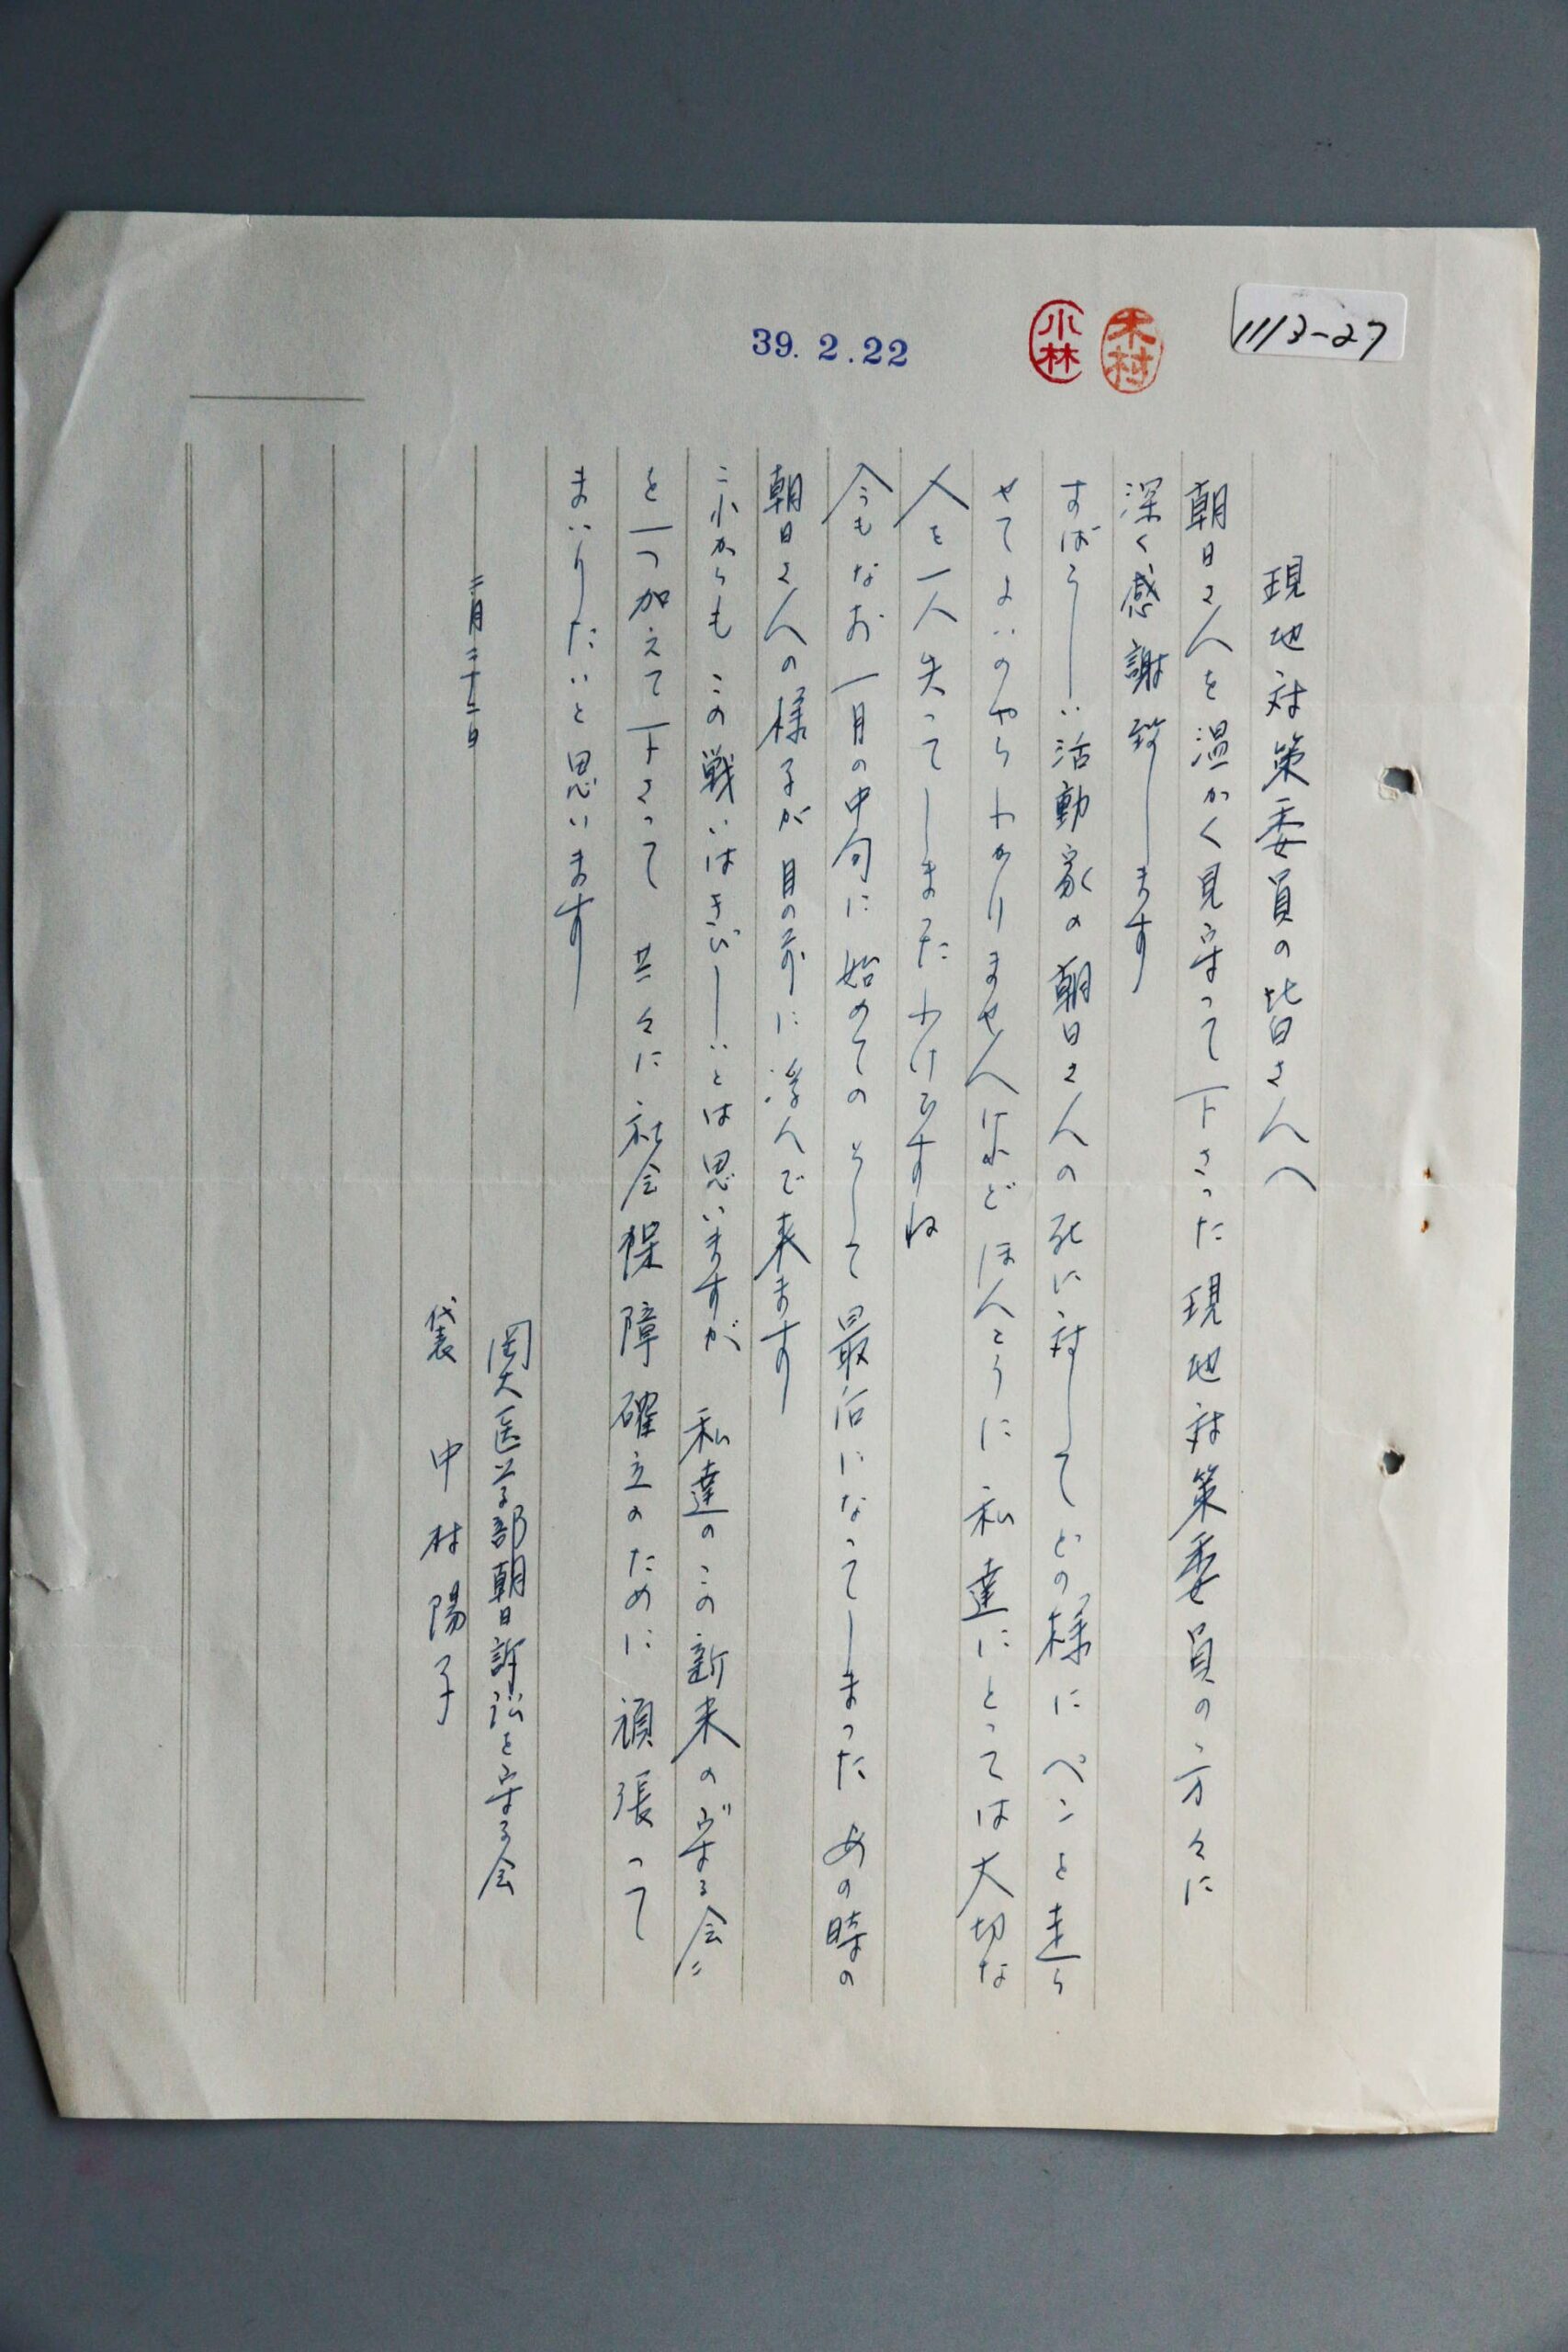 1113-27
木村
小林
39.2.22
現地対策委員の皆さんへ
朝日さんを温かく見守って下さった現地対策委員の方々に
深く感謝致します
すばらしい活動家の朝日さんの死に対してどの様にペンを走ら
せてよいのやらわかりませんけれどほんとうに私達にとっては大切な
人を一人失ってしまったわけですね
今もなお一月の中旬に始めてのそして最后になってしまったあの時の
朝日さんの様子が目の前に浮んで来ます
これからもこの戦いはきびしいとは思いますが 私達のこの新米の"守る会"
を一つ加えて下さって 共々に社会保障確立のために頑張って
まいりたいと思います
二月二十二日
岡大医学部朝日訴訟を守る会
代表 中村陽子